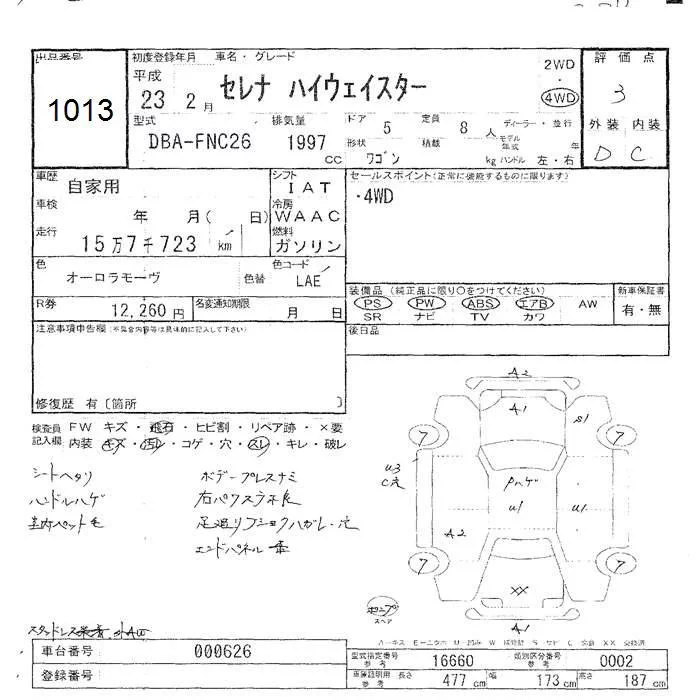 出品番号
1013
初度登録年月
平成
23 2月
車名・グレード
セレナ ハイウェイスター
2WD
・
4WD
評価点
3
外装 内装
D C
型式
DBA-FNC26
排気量
1997
cc
ドア
5
定員
8人
ディーラー・並行
形状
ワゴン
積載
kg
モデル年式
年
ハンドル 左・右
車歴
自家用
シフト
IAT
車検
年 月( 日)
冷房
WAAC
走行
15万7千723 km
燃料
ガソリン
色
オーロラモーヴ
色替
色コード
LAE
R券
12,260円
名変通知期限
月 日
セールスポイント(正常に機能するものに限ります)
・4WD
装備品(純正品に限り○をつけてください)
PS PW ABS エアB AW
SR ナビ TV カワ
新車保証書
有・無
後日品
注意事項申告欄(不具合内容等は具体的に記入して下さい)
修復歴 有〔箇所 〕
検査員記入欄
FW キズ・飛石・ヒビ割・リペア跡・×要
内装 キズ・汚レ・コゲ・穴・スレ・キレ・破レ
シートヘタリ
ハンドルハゲ
室内ペット毛
ボデープレスナミ
右パワスラ不良
足廻リフショクハガレ・穴
エンドパネル
A2
A1
S1
7
7
U3
C穴
Pハゲ
U1
U1
A2
7
7
XX
A1
スペア
車台番号
000626
登録番号
型式指定番号
参考
16660
類別区分番号
参考
0002
車庫証明用
参考
長さ
477cm
幅
173cm
高さ
187cm